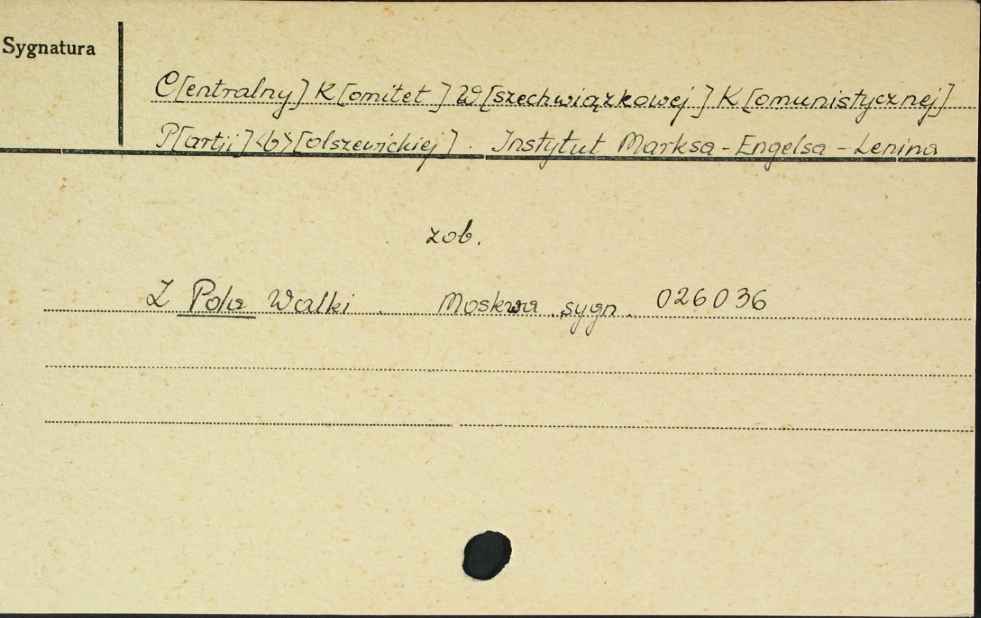 Sygnatura
C[entralny] K[omitet] W[szechwiązkowej] K[omunistycznej]
P[artji] <b>[olszewickiej]. Instytut Marksa - Engelsa - Lenina
zob.
Z Pola Walki. Moskwa sygn. 026036